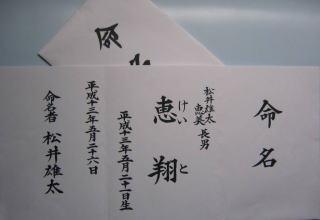 命名
松井雄太
恵美 長男
恵翔
けいと
平成十三年五月二十一日生
平成十三年五月二十六日
命名者 松井雄太